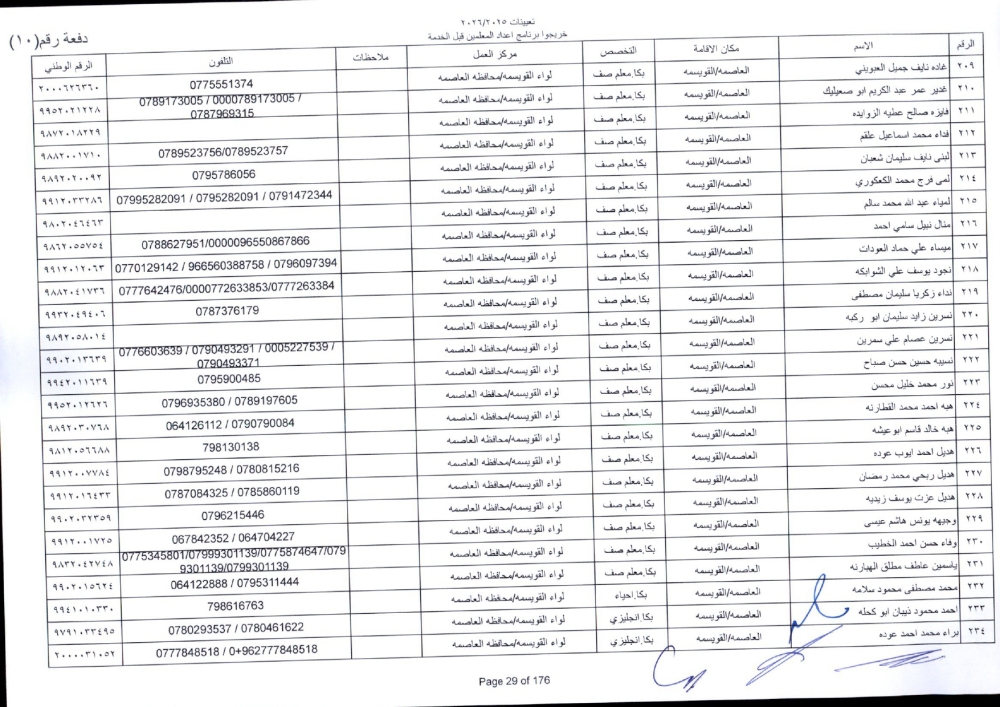 تعيينات ٢٠٢٦/٢٠٢٥
خريجوا برنامج اعداد المعلمين قبل الخدمة
دفعة رقم(١٠)
الرقم الاسم مكان الاقامة التخصص مركز العمل ملاحظات التلفون الرقم الوطني
٢٠٩ غاده نايف جميل العبويني العاصمه/القويسمه بكا.معلم صف لواء القويسمه/محافظه العاصمه 0775551374 ٢٠٠٠٦٢٦٣٦٠
٢١٠ غدير عمر عبد الكريم ابو صعيليك العاصمه/القويسمه بكا.معلم صف لواء القويسمه/محافظه العاصمه 0789173005 / 0000789173005 / 0787969315 ٩٩٥٢٠٢١٢٢٨
٢١١ فايزه صالح عطيه الزوايده العاصمه/القويسمه بكا.معلم صف لواء القويسمه/محافظه العاصمه ٩٨٧٢٠١٨٢٢٩
٢١٢ فداء محمد اسماعيل علقم العاصمه/القويسمه بكا.معلم صف لواء القويسمه/محافظه العاصمه 0789523756/0789523757 ٩٨٨٢٠٠١٧١٠
٢١٣ لبنى نايف سليمان شعبان العاصمه/القويسمه بكا.معلم صف لواء القويسمه/محافظه العاصمه 0795786056 ٩٨٩٢٠٢٠٠٩٢
٢١٤ لمى فرج محمد الكعكوري العاصمه/القويسمه بكا.معلم صف لواء القويسمه/محافظه العاصمه 07995282091 / 0795282091 / 0791472344 ٩٩١٢٠٣٣٢٨٦
٢١٥ لمياء عبد الله محمد سالم العاصمه/القويسمه بكا.معلم صف لواء القويسمه/محافظه العاصمه ٩٨٠٢٠٤٦٤٦٣
٢١٦ منال نبيل سامي احمد العاصمه/القويسمه بكا.معلم صف لواء القويسمه/محافظه العاصمه 0788627951/0000096550867866 ٩٨٦٢٠٥٥٧٥٤
٢١٧ ميساء علي حماد العودات العاصمه/القويسمه بكا.معلم صف لواء القويسمه/محافظه العاصمه 0770129142 / 966560388758 / 0796097394 ٩٩١٢٠١٢٠٦٣
٢١٨ نجود يوسف علي الشوابكه العاصمه/القويسمه بكا.معلم صف لواء القويسمه/محافظه العاصمه 0777642476/0000772633853/0777263384 ٩٨٨٢٠٤١٧٣٦
٢١٩ نداء زكريا سليمان مصطفى العاصمه/القويسمه بكا.معلم صف لواء القويسمه/محافظه العاصمه 0787376179 ٩٩٣٢٠٤٩٤٠٦
٢٢٠ نسرين زايد سليمان ابو ركبه العاصمه/القويسمه بكا.معلم صف لواء القويسمه/محافظه العاصمه ٩٨٩٢٠٥٨٠١٤
٢٢١ نسرين عصام علي سمرين العاصمه/القويسمه بكا.معلم صف لواء القويسمه/محافظه العاصمه 0776603639 / 0790493291 / 0005227539 / 0790493371 ٩٩٠٢٠١٣٦٣٩
٢٢٢ نسيبه حسين حسن صباح العاصمه/القويسمه بكا.معلم صف لواء القويسمه/محافظه العاصمه 0795900485 ٩٩٤٢٠١١٦٣٩
٢٢٣ نور محمد خليل محسن العاصمه/القويسمه بكا.معلم صف لواء القويسمه/محافظه العاصمه 0796935380 / 0789197605 ٩٩٥٢٠١٢٦٢٦
٢٢٤ هبه احمد محمد القطارنه العاصمه/القويسمه بكا.معلم صف لواء القويسمه/محافظه العاصمه 064126112 / 0790790084 ٩٨٩٢٠٣٠٧٦٨
٢٢٥ هبه خالد قاسم ابوعيشه العاصمه/القويسمه بكا.معلم صف لواء القويسمه/محافظه العاصمه 798130138 ٩٨١٢٠٥٦٦٨٨
٢٢٦ هديل احمد ايوب عوده العاصمه/القويسمه بكا.معلم صف لواء القويسمه/محافظه العاصمه 0798795248 / 0780815216 ٩٩١٢٠٠٧٧٨٤
٢٢٧ هديل ربحي محمد رمضان العاصمه/القويسمه بكا.معلم صف لواء القويسمه/محافظه العاصمه 0787084325 / 0785860119 ٩٩١٢٠١٦٤٣٣
٢٢٨ هديل عزت يوسف زيديه العاصمه/القويسمه بكا.معلم صف لواء القويسمه/محافظه العاصمه 0796215446 ٩٩٠٢٠٣٢٣٥٩
٢٢٩ وجيهه يونس هاشم عيسى العاصمه/القويسمه بكا.معلم صف لواء القويسمه/محافظه العاصمه 067842352 / 064704227 ٩٩١٢٠٠١٧٢٥
٢٣٠ وفاء حسن احمد الخطيب العاصمه/القويسمه بكا.معلم صف لواء القويسمه/محافظه العاصمه 0775345801/07999301139/0775874647/0799301139/0799301139 ٩٨٣٢٠٤٢٧٤٨
٢٣١ ياسمين عاطف مطلق الهبارنه العاصمه/القويسمه بكا.معلم صف لواء القويسمه/محافظه العاصمه 064122888 / 0795311444 ٩٩٠٢٠١٥٦٢٤
٢٣٢ محمد مصطفى محمود سلامه العاصمه/القويسمه بكا.احياء لواء القويسمه/محافظه العاصمه 798616763 ٩٩٤١٠١٠٣٣٠
٢٣٣ احمد محمود ذيبان ابو كحله العاصمه/القويسمه بكا.انجليزي لواء القويسمه/محافظه العاصمه 0780293537 / 0780461622 ٩٧٩١٠٣٣٤٩٥
٢٣٤ براء محمد احمد عوده العاصمه/القويسمه بكا.انجليزي لواء القويسمه/محافظه العاصمه 0777848518 / 0+962777848518 ٢٠٠٠٠٣١٠٥٢
Page 29 of 176